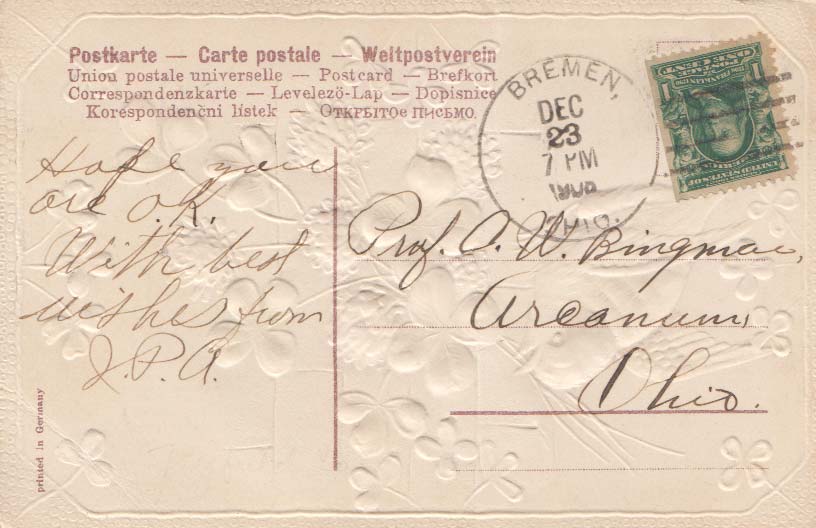 Postkarte — Carte postale — Weltpostverein
Union postale universelle — Postcard — Brefkort
Correspondenzkarte — Levelező-Lap — Dopisnice
Korespondenční lístek — Открытое письмо.
BREMEN,
DEC
23
7 PM
OHIO.
ONE CENT
1 1
UNITED STATES OF
Hope you
are O.K.
With best
wishes from
J.P.A.
Prof. O. W. Bingman,
Arcanum,
Ohio.
printed in Germany